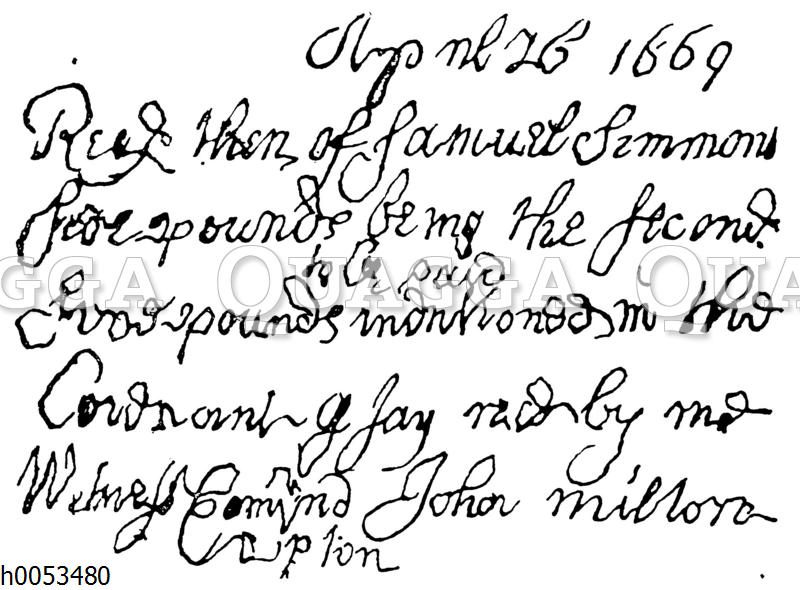 April 26 1669
Recd then of Samuel Simmons
five pounds being the Second
to be paid
five pounds mentioned in the
Covenant I say recd by me
Witness Edmund John Milton
Upton
QUAGGA QUAGGA QUAGGA
h0053480